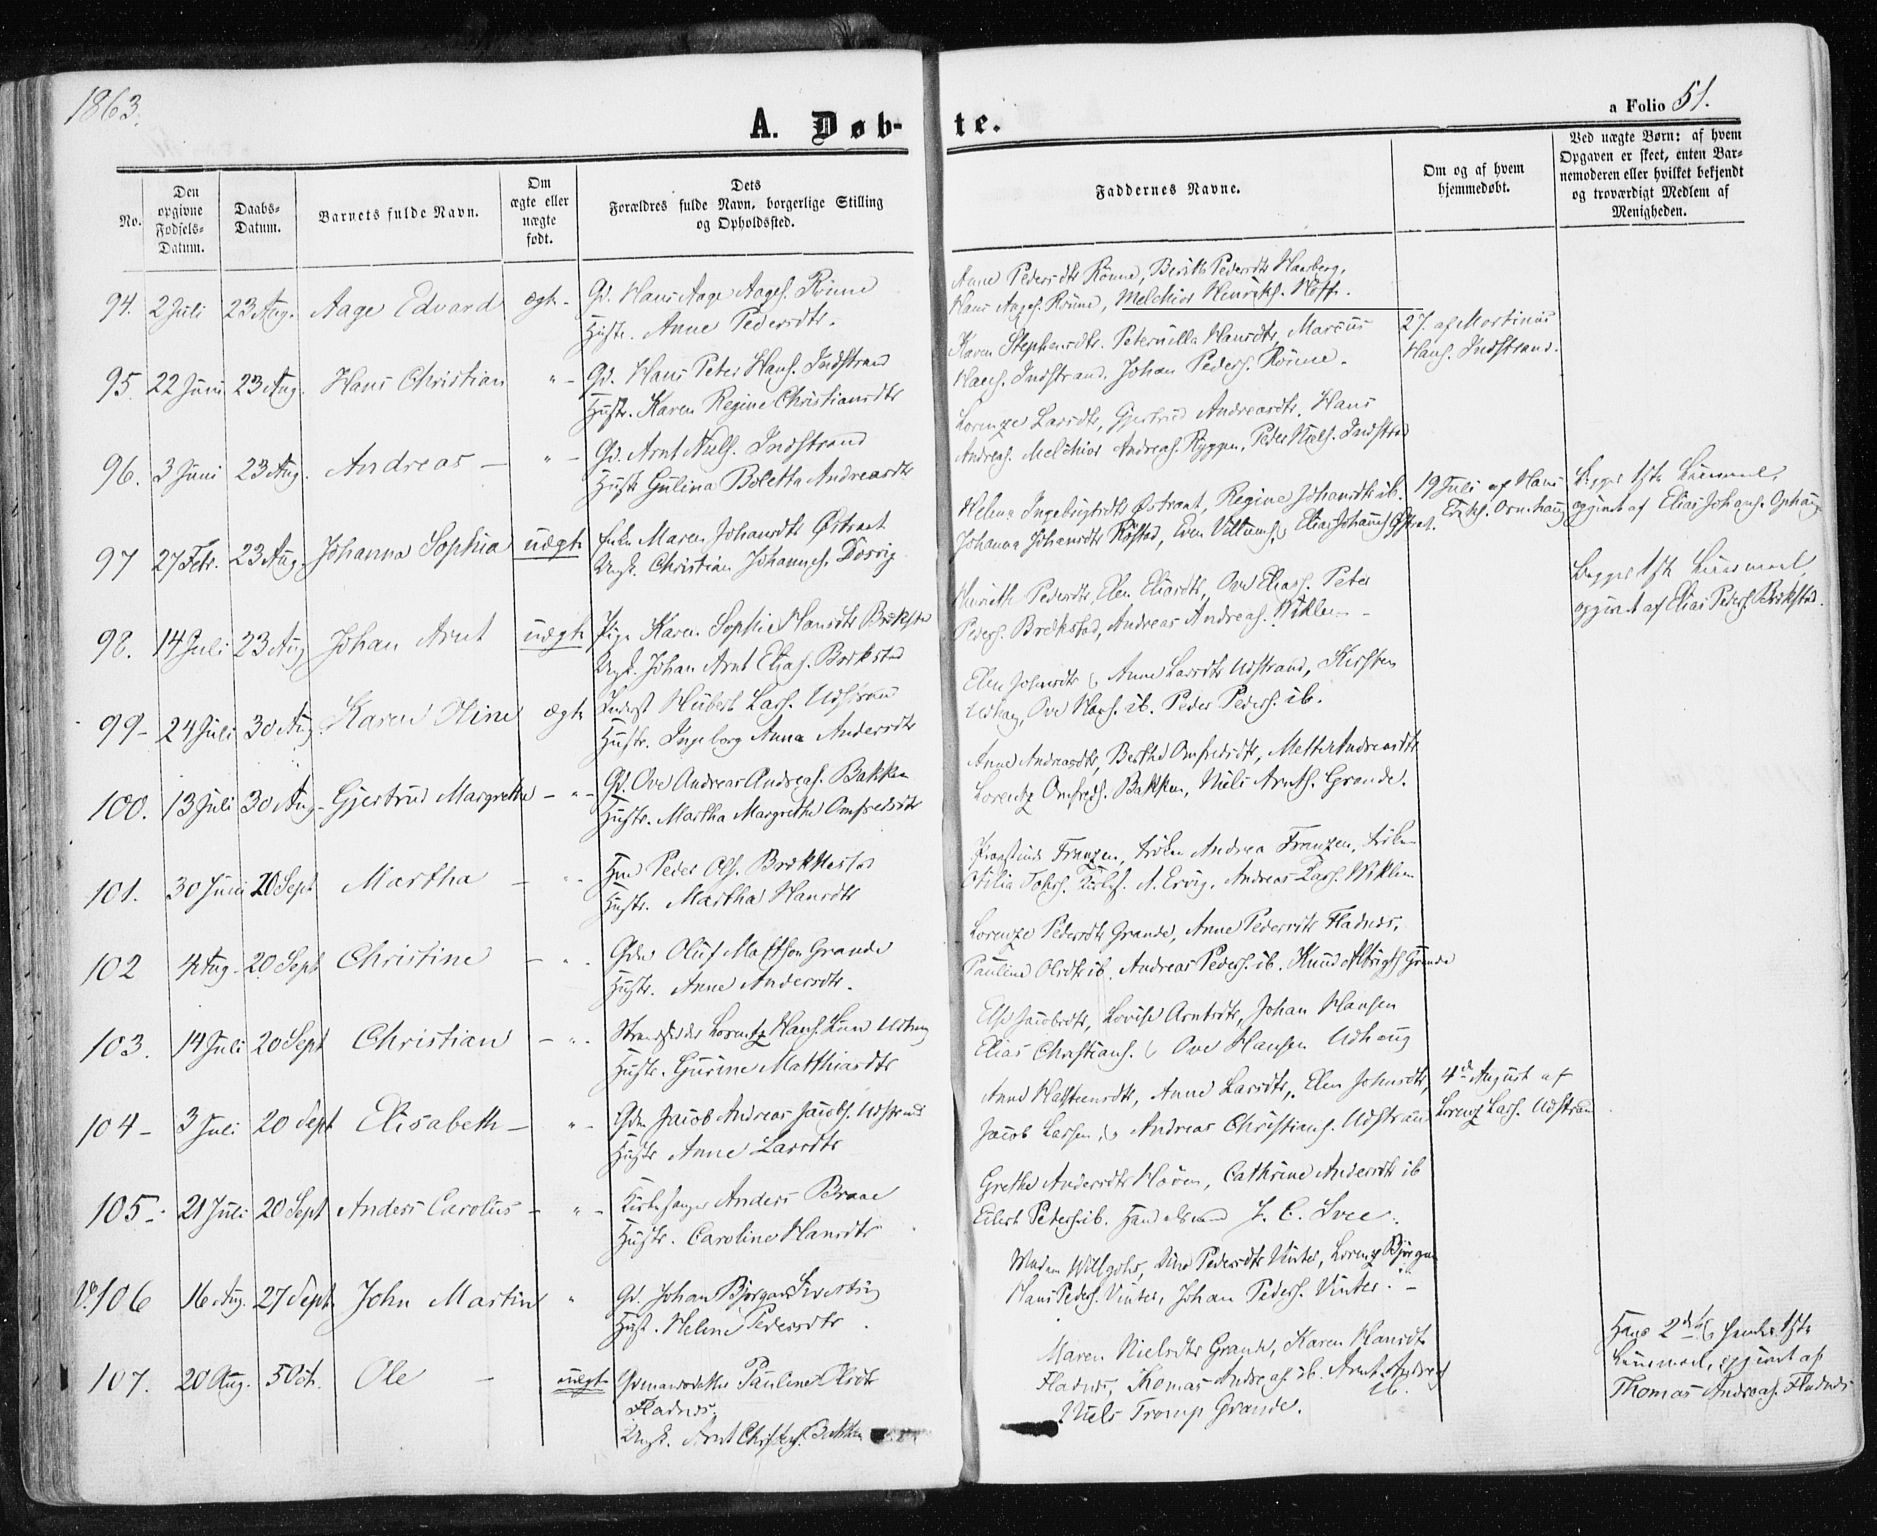 1863.
A. Døb- te.
a Folio 51.
No.
Den opgivne Fødsels-Datum.
Daabs-Datum.
Barnets fulde Navn.
Om ægte eller uægte født.
Dets Forældres fulde Navn, borgerlige Stilling og Opholdssted.
Faddernes Navne.
Om og af hvem hjemmedøbt.
Ved uægte Børn: af hvem Opgaven er skeet, enten Barnemoderen eller hvilket bekjendt og troværdigt Medlem af Menigheden.
94. 2 Juli 23 Aug. Aage Edvard ægte Gd. Hans Aage Aages. Rønne
Hustr. Anne Pedersdtr.
Anne Pedersdtr Rønne, Berith Pedersdtr Hauberg,
Hans Aages. Rønne, Melchior Henriks. Hoff.
95. 22 Juni 23 Aug. Hans Christian " - Gd. Hans Peter Hans. Indstrand
Hustr. Karen Regine Christiansdtr
Karen Stephensdtr. Peternilla Hansdtr, Marcus
Hans. Indstrand. Johan Peders. Rønne.
27. af Martinus
Hans. Indstrand.
96. 3 Juni 23 Aug. Andreas - " - Gd. Arnt Niels. Indstrand
Hustr Gulina Boletta Andreasdtr
Lorenze Larsdtr, Gjertrud Andreasdtr. Hans
Andreas. Melchior Andreas. Ryggen, Peder Niels. Indstrand
97 27 Febr. 23 Aug. Johanna Sophia uægte Enke Maren Johansdtr Østraat
Ungk. Christian Johannes. Dosvig
Helena Ingebrigtsdtr Østraat, Regine Johansdtr ib.
Johanna Johansdtr Røstad, Even Elias Johannes Østraat.
19 Juli af Hans
Erichs. Ornhaug
Begges 1ste Leiermaal,
opgivet af Elias Johans. Ophaug
98. 14 Juli 23 Aug Johan Arnt uægte Pige Karen Sophie Hansdtr Brekstad
Ungk. Johan Arnt Elias. Brekstad
Pedersdtr, Elen Eliasdtr, Ove Elias. Peter
Peders. Brekstad, Andreas Andreas. Viklem -
Begges 1ste Leiermaal,
opgivet af Elias Peders. Brekstad.
99- 24 Juli 30 Aug Karen Oline ægte Inderst Hubert Lars. Udstrand
Hustr. Ingeborg Anna Andersdtr
Elen Johnsdtr & Anne Larsdtr Udstrand, Kirsten
Udhaug, Ove Hans. ib. Peder Peders. ib.
100. 13 Juli 30 Aug. Gjertrud Margrethe - " - Gd. Ove Andreas Andreas. Bakken
Hustr. Martha Margrethe Omfredsdtr
Anne Andreasdtr, Berthe Omfredsdtr, Mette Andreasdtr
Lorentz Omfreds. Bakken, Niels Arnts. Grande.
101. 30 Juni 20 Sept Martha - " - Hmd Peder Ols. Brekkestad
Hustr. Martha Hansdtr
Provstinde Franzen, Frøken Andrea Franzen, Frøken
A. Ervig, Andreas Lars. Viklem
102 4 Aug. 20 Sept Christine - " - Gdm Oluf Matthson Grande
Hustr. Anne Andersdtr.
Lorenze Pedersdtr Grande, Anne Pedersdtr Fladnes,
Pauline Olsdtr ib. Andreas Peders. ib. Knud Albrigts Grande
103. 14 Juli 20 Sept Christian - " - Strandsidder Lorentz Hans. Udhaug
Hustr. Gurine Matthiasdtr
Else Jacobsdtr, Lovise Arntsdtr, Johan Hansen
Elias Christians. & Ove Hansen Udhaug
104- 3 Juli 20 Sept Elisabeth - " - Gdm Jacob Andreas Jacobs. Udstrand
Hustr Anne Larsdtr
Anne Larsdtr, Elen Johnsdtr,
Jacob Larsen, & Andreas Christians. Udstrand
4de August af
Lorentz Lars. Udstrand
105- 21 Juli 20 Sept Anders Carolius - " - Kirkesanger Anders Braae
Hustr. Caroline Hansdtr
Grethe Andersdtr Hoven, Cathrine Andersdtr ib
Eilert Peters. ib. Handelsmand J. C. Svee.
No 106 16 Aug. 27 Sept. John Martin " Gd. Johan Bjørgan
Hust. Heline Pedersdtr.
Madam Willgohs, Pedersdtr Vinter, Lorentz Bjørgan
Hans Peders. Vinter, Johan Peders. Vinter. -
107. 20 Aug. 5 Oct. Ole - uægte Gdmandsdatter Pauline Olsdtr
Fladnes,
Ungk. Arnt Christens. Bakken
Maren Nielsdtr Grande, Karen Hansdtr
Fladnes, Thomas Andreas. ib. Arnt Andreas
ib.
Niels Tromp Grande.
Hans 2det & hendes 1ste
Leiermaal, opgivet af
Thomas Andreas. Fladnes